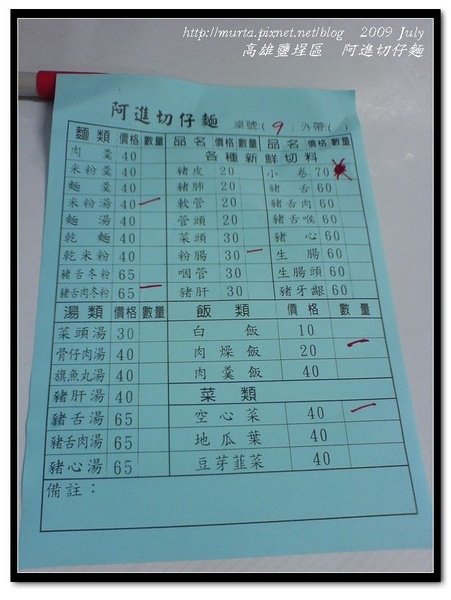 http://murta.pixnet.net/blog 2009 July
高雄鹽埕區 阿進切仔麵
阿進切仔麵 桌號:( 9 ) 外帶:( )
麵類 價格 數量 品名 價格 數量 品名 價格 數量
各種新鮮切料
肉羹 40
米粉羹 40 豬皮 20 小卷 70
麵羹 40 豬肺 20 豬舌 60
米粉湯 40 一 軟管 20 豬舌肉 60
麵湯 40 管頭 20 豬舌喉 60
乾麵 40 菜頭 30 豬心 60
乾米粉 40 粉腸 30 一 生腸 60
豬舌冬粉 65 咽管 30 生腸頭 60
豬舌肉冬粉 65 一 豬肝 30 豬牙齦 60
湯類 價格 數量 飯類 價格 數量
菜頭湯 30 白飯 10
骨仔肉湯 40 肉燥飯 20 一
旗魚丸湯 40 肉羹飯 40
豬肝湯 40 菜類
豬舌湯 65 空心菜 40 一
豬舌肉湯 65 地瓜葉 40
豬心湯 65 豆芽韮菜 40
備註：